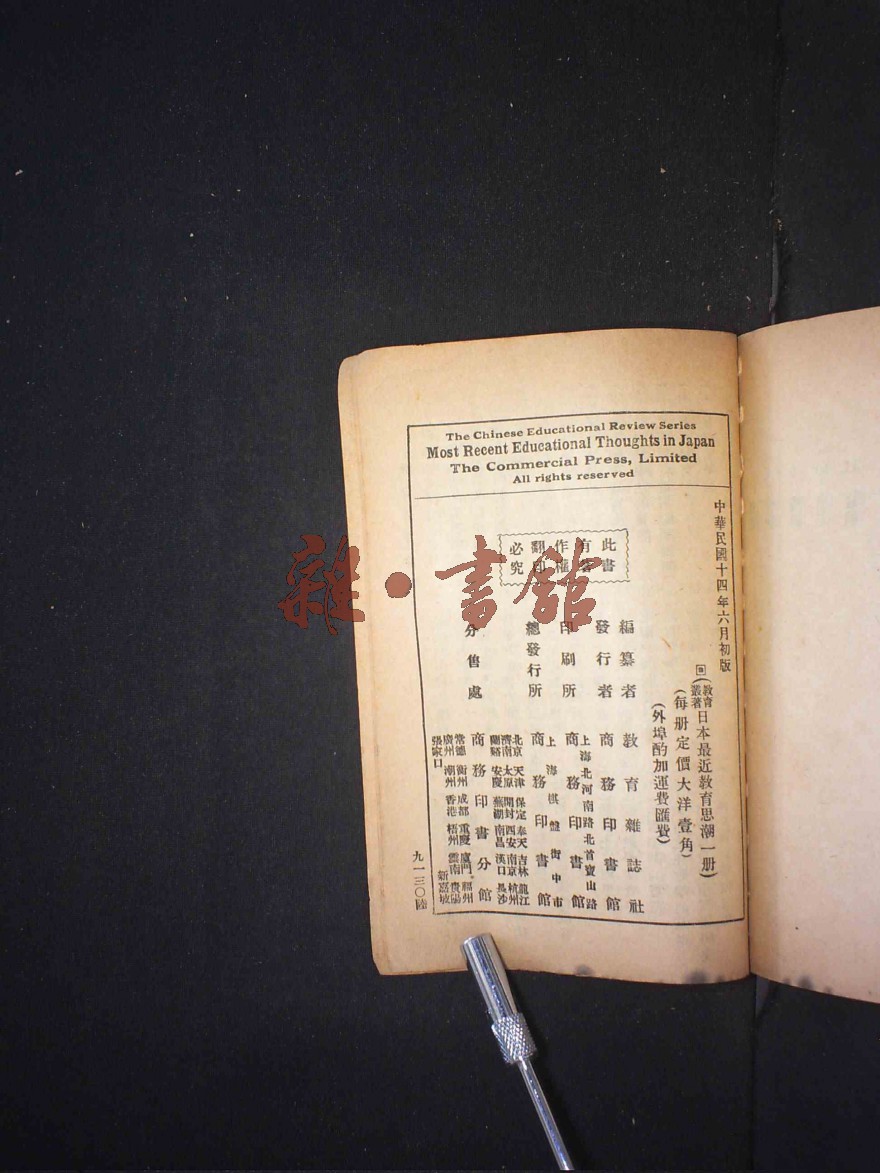 The Chinese Educational Review Series
Most Recent Educational Thoughts in Japan
The Commercial Press, Limited
All rights reserved
中華民國十四年六月初版
(教育叢著日本最近教育思潮一册)
(每册定價大洋壹角)
(外埠酌加運費匯費)
此書
有著
作權
翻印
必究
編纂者 教育雜誌社
發行者 商務印書館
上海北河南路北首寶山路
印刷所 商務印書館
上海棋盤街中市
總發行所 商務印書館
分售處 商務印書分館
北京 天津 保定 奉天 吉林 龍江
濟南 太原 開封 西安 南京 杭州
蘭谿 安慶 蕪湖 南昌 漢口 長沙
常德 衡州 成都 重慶 廈門 福州
廣州 潮州 香港 梧州 雲南 貴陽
張家口 新嘉坡
九一三〇陸
雜·書館